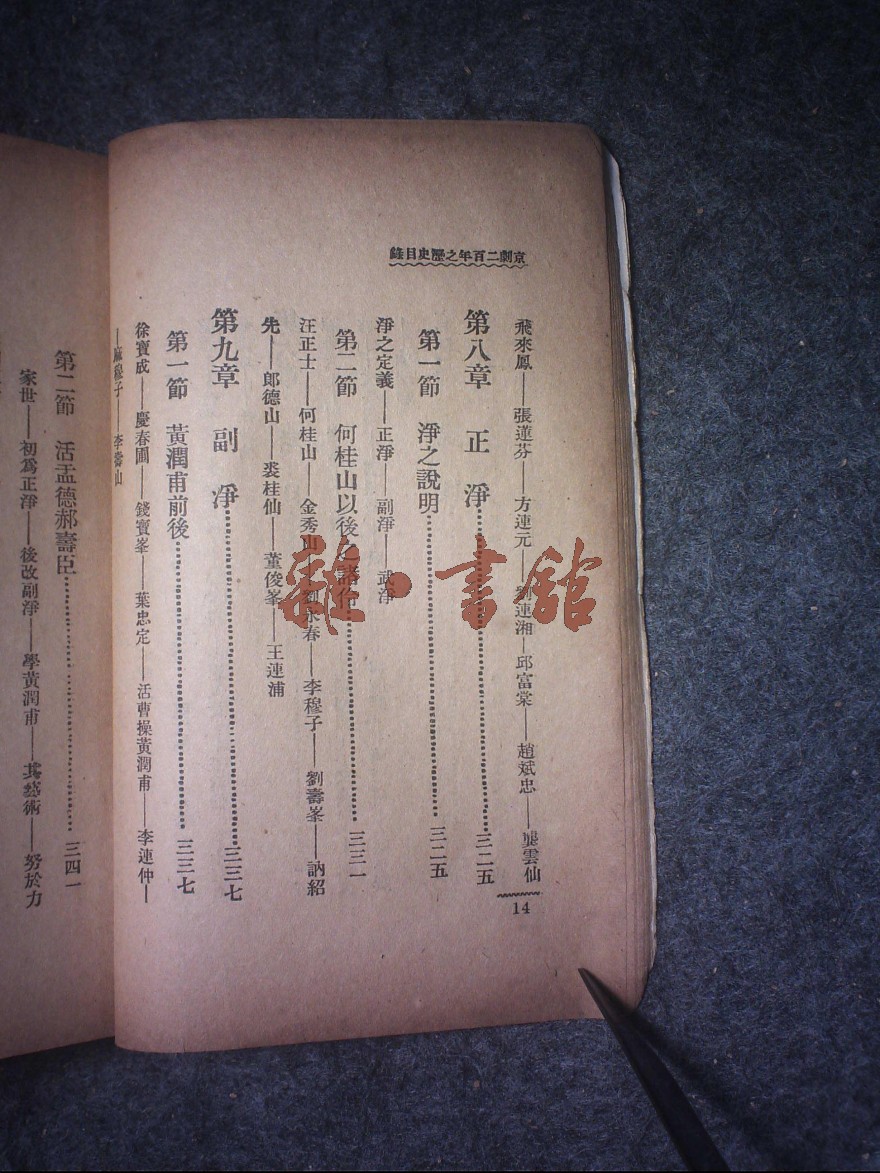 京劇二百年之歷史目錄
飛來鳳——張蓮芬——方連元——劉連湘——邱富棠——趙斌忠——龔雲仙
第八章　正　淨……三二五
第一節　淨之說明……三二五
淨之定義——正淨——副淨——武淨
第二節　何桂山以後之諸伶……三三一
汪正士——何桂山——金秀山——劉永春——李穆子——劉壽峯——訥紹
先——郎德山——裘桂仙——董俊峯——王連浦
第九章　副　淨……三三七
第一節　黃潤甫前後……三三七
徐寶成——慶春圃——錢寶峯——葉忠定——活曹操黃潤甫——李連仲——
——麻穆子——李壽山
14
第二節　活孟德郝壽臣……三四一
家世——初爲正淨——後改副淨——學黃潤甫——其藝術——努於力
書館